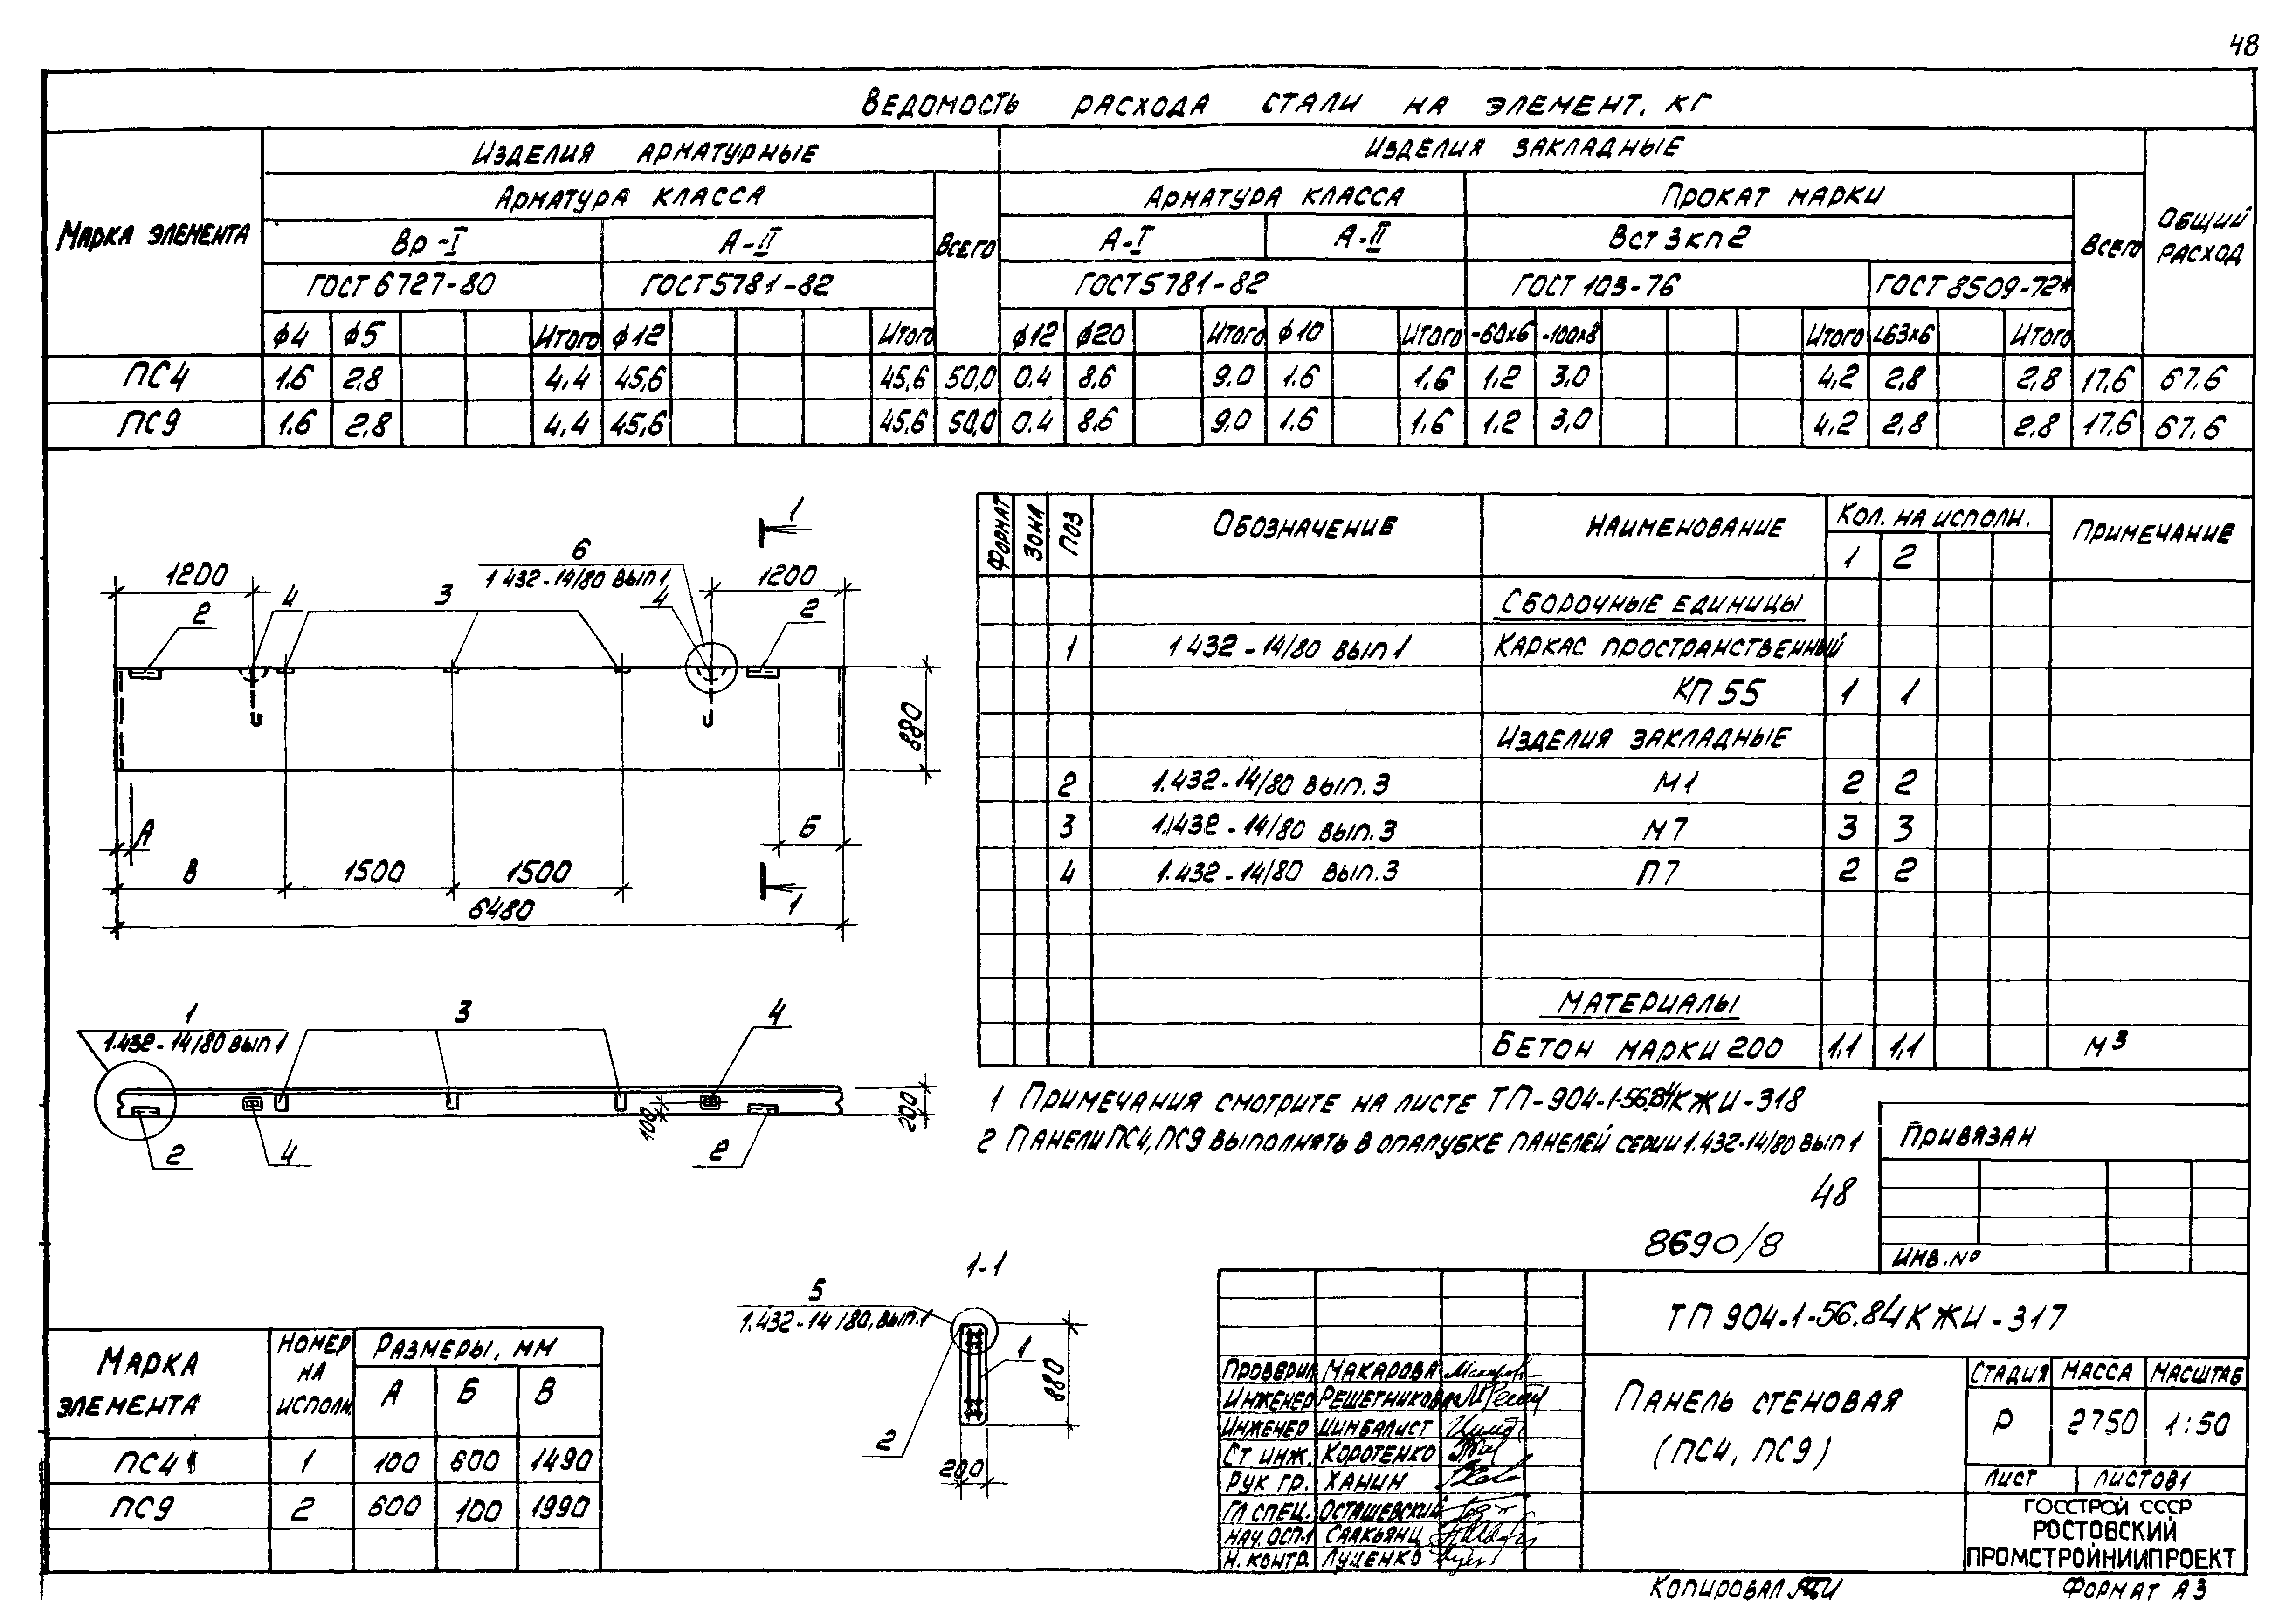 48
Ведомость расхода стали на элемент, кг
Марка элемента
Изделия арматурные
Изделия закладные
Общий расход
Арматура класса
Всего
Арматура класса
Прокат марки
Всего
Вр-I
А-II
А-I
А-II
Вст3кп2
ГОСТ 6727-80
ГОСТ 5781-82
ГОСТ 5781-82
ГОСТ 103-76
ГОСТ 8509-72*
ф4 ф5 Итого ф12 Итого ф12 ф20 Итого ф10 Итого -60х6 -100х8 Итого L63х6 Итого
ПС4 1.6 2,8 4,4 45,6 45,6 50,0 0.4 8,6 9,0 1.6 1,6 1,2 3,0 4,2 2,8 2,8 17,6 67,6
ПС9 1.6 2,8 4,4 45,6 45,6 50,0 0.4 8,6 9,0 1.6 1,6 1,2 3,0 4,2 2,8 2,8 17,6 67,6
1
6
1.432-14/80 вып 1
1200
1200
2
4
3
4
2
880
А
Б
В
1500
1500
6480
1
Формат
Зона
Поз
Обозначение
Наименование
Кол. на исполн.
Примечание
1 2
Сборочные единицы
1 1432-14/80 вып 1 Каркас пространственный
КП 55 1 1
Изделия закладные
2 1.432-14/80 вып.3 М1 2 2
3 1.1432-14/80 вып.3 М7 3 3
4 1.432-14/80 вып.3 П7 2 2
Материалы
Бетон марки 200 1,1 1,1 м³
1
1.432-14/80 вып 1
3
4
100
200
2
4
2
1 Примечания смотрите на листе ТП-904-1-56.84КЖИ-318
2 Панели ПС4, ПС9 выполнять в опалубке панелей серии 1.432-14/80 вып 1
48
8690/8
Привязан
Инв. №
1-1
5
1.432-14/80, вып.1
1
880
2
200
Марка элемента
Номер на исполн.
Размеры, мм
А Б В
ПС4 1 100 600 1490
ПС9 2 600 100 1990
ТП 904-1-56.84КЖИ-317
Проверил Макарова
Инженер Решетникова
Инженер Цимбалист
Ст инж. Коротенко
Рук гр. Ханин
Гл спец. Осташевский
Нач. ОСП-1 Саакьянц
Н. контр. Луценко
Панель стеновая
(ПС4, ПС9)
Стадия Масса Масштаб
Р 2750 1:50
Лист Листов 1
ГОССТРОЙ СССР
РОСТОВСКИЙ
ПРОМСТРОЙНИИПРОЕКТ
Копировал
Формат А3